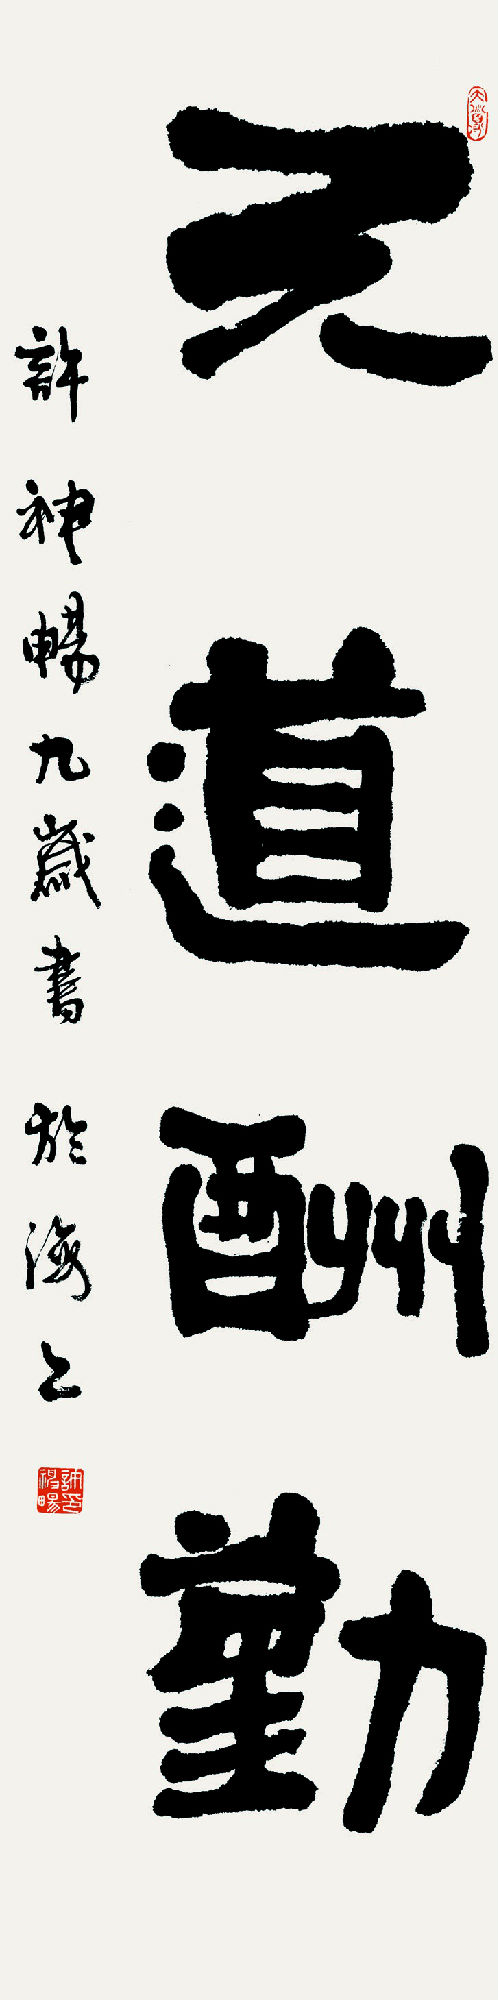 天道酬勤
許神暢九歲書於海上